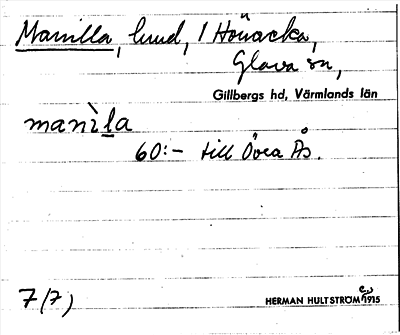 Manilla, hmd, 1 Hönacka,
Glava sn,
Gillbergs hd, Värmlands län
manìla
60:- till Övra Ås.
7(7)
HERMAN HULTSTRÖM 1915